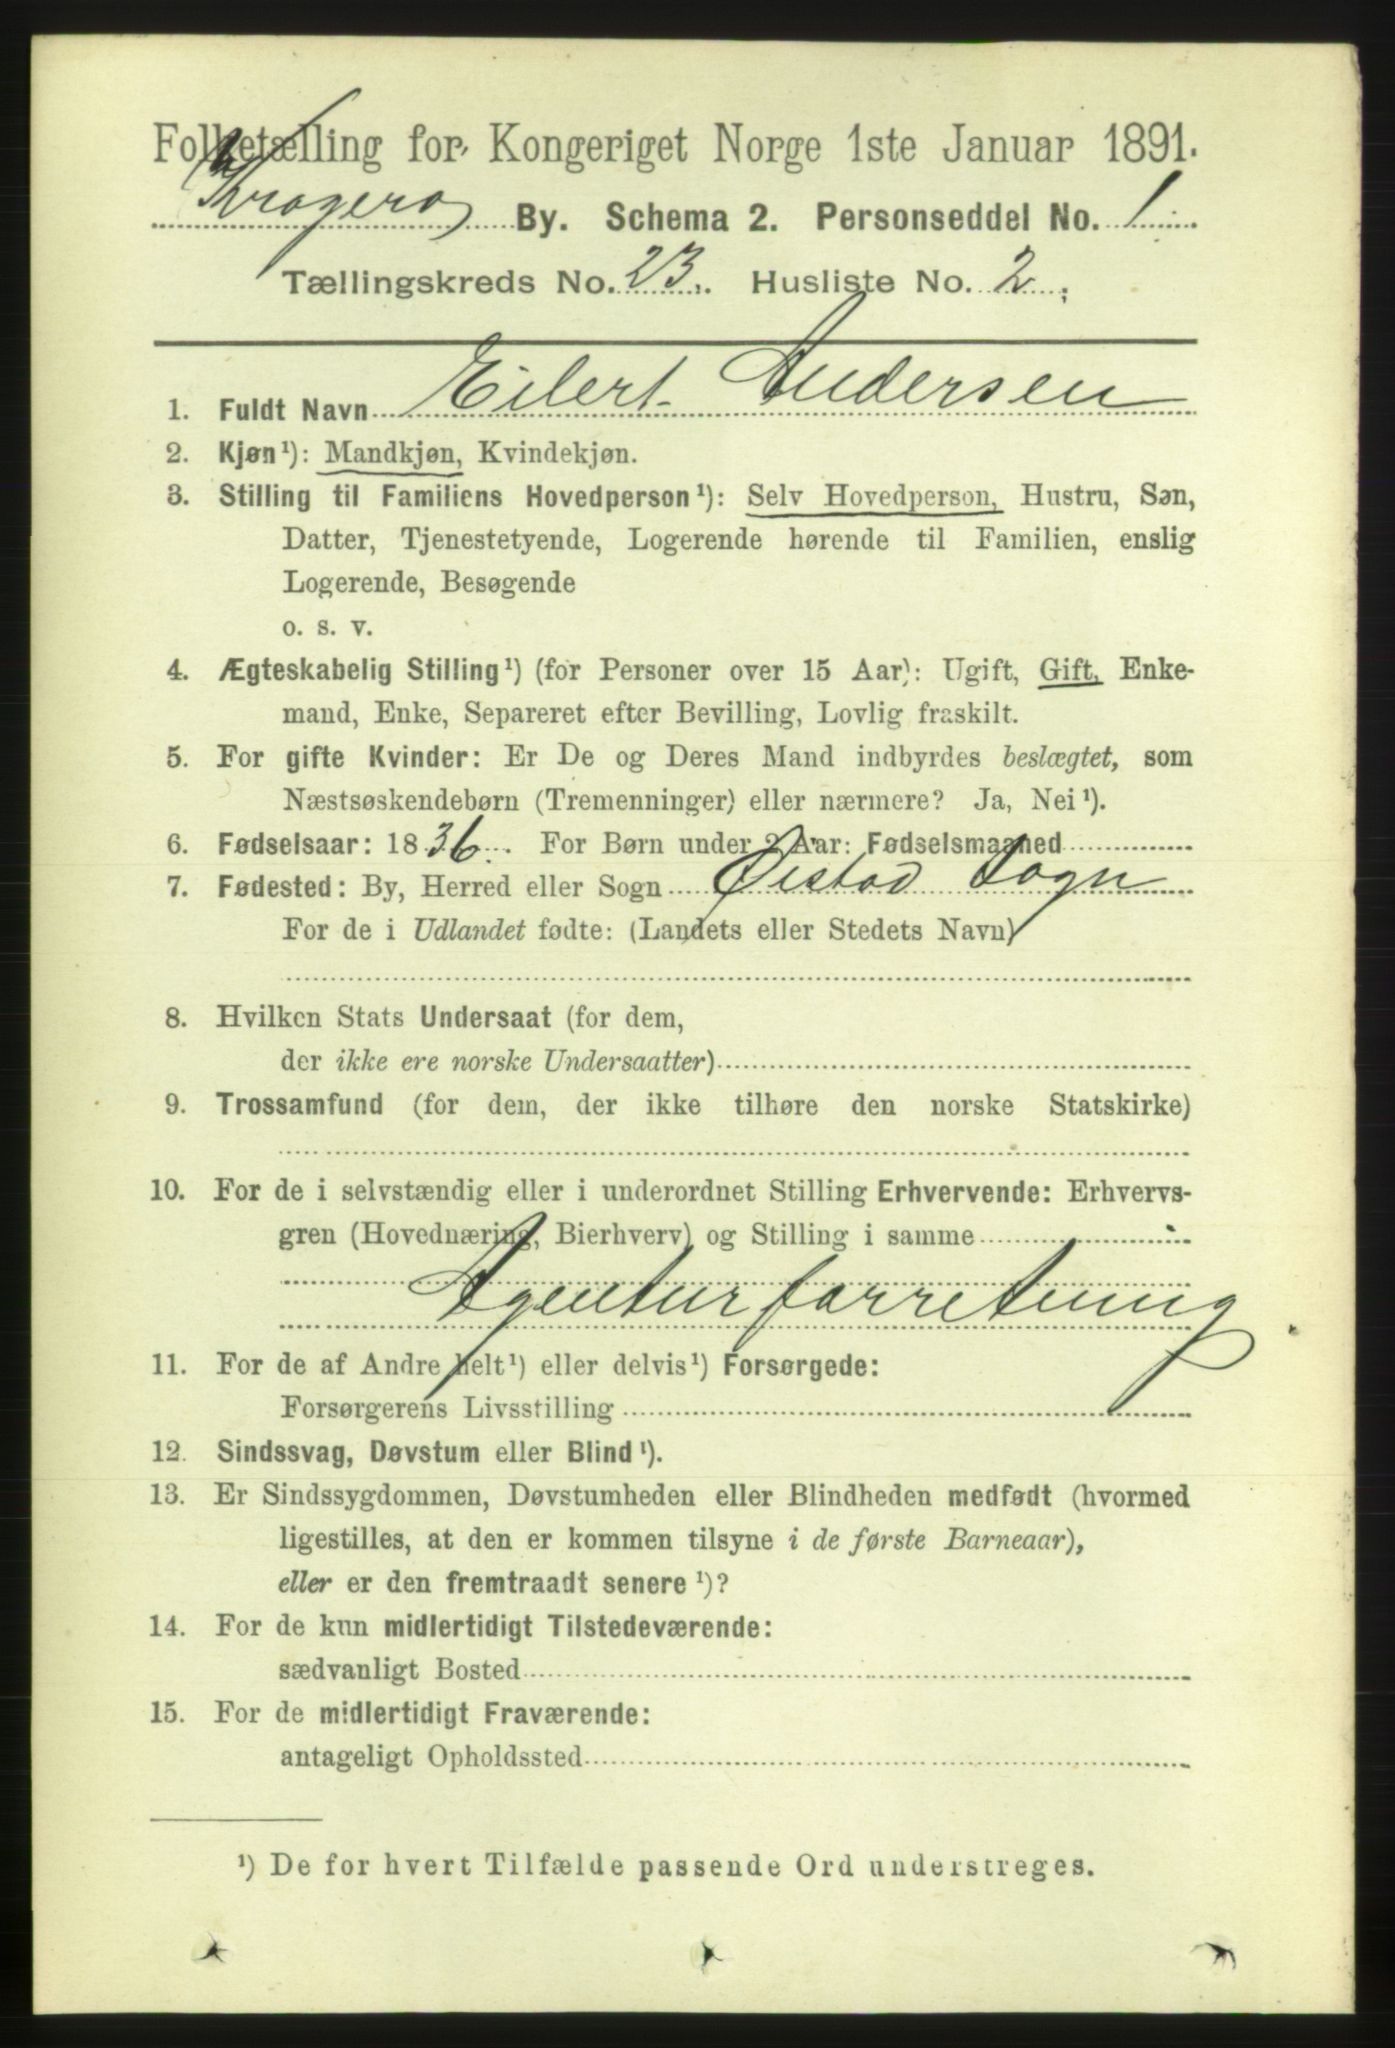 Folketælling for Kongeriget Norge 1ste Januar 1891.
Kragerø By. Schema 2. Personseddel No. 1
Tællingskreds No. 23. Husliste No. 2.
1. Fuldt Navn Eilert Andersen
2. Kjøn¹): Mandkjøn, Kvindekjøn.
3. Stilling til Familiens Hovedperson¹): Selv Hovedperson, Hustru, Søn,
Datter, Tjenestetyende, Logerende hørende til Familien, enslig
Logerende, Besøgende
o. s. v.
4. Ægteskabelig Stilling¹) (for Personer over 15 Aar): Ugift, Gift, Enke-
mand, Enke, Separeret efter Bevilling, Lovlig fraskilt.
5. For gifte Kvinder: Er De og Deres Mand indbyrdes beslægtet, som
Næstsøskendebørn (Tremenninger) eller nærmere? Ja, Nei¹).
6. Fødselsaar: 1836. For Børn under 2 Aar: Fødselsmaaned
7. Fødested: By, Herred eller Sogn Øiestad Sogn
For de i Udlandet fødte: (Landets eller Stedets Navn)
8. Hvilken Stats Undersaat (for dem,
der ikke ere norske Undersaatter)
9. Trossamfund (for dem, der ikke tilhøre den norske Statskirke)
10. For de i selvstændig eller i underordnet Stilling Erhvervende: Erhvervs-
gren (Hovednæring, Bierhverv) og Stilling i samme
Agenturforretning
11. For de af Andre helt¹) eller delvis¹) Forsørgede:
Forsørgerens Livsstilling
12. Sindssvag, Døvstum eller Blind¹).
13. Er Sindssygdommen, Døvstumheden eller Blindheden medfødt (hvormed
ligestilles, at den er kommen tilsyne i de første Barneaar),
eller er den fremtraadt senere¹)?
14. For de kun midlertidigt Tilstedeværende:
sædvanligt Bosted
15. For de midlertidigt Fraværende:
antageligt Opholdssted
¹) De for hvert Tilfælde passende Ord understreges.